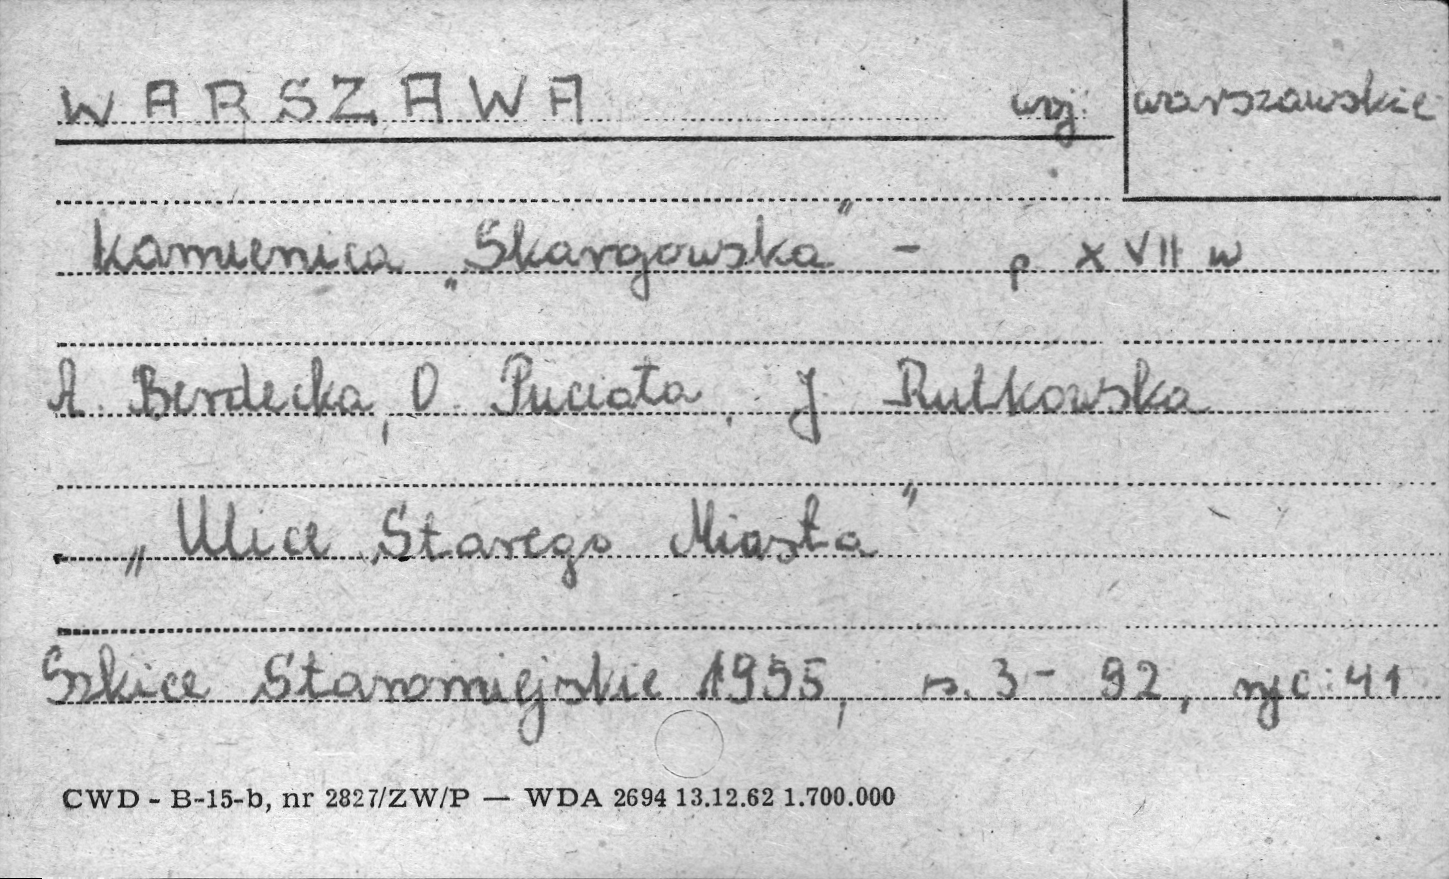 WARSZAWA woj. warszawskie
Kamienica „Skargowska" - p XVII w
A. Berdecka, O. Puciata, J. Rutkowska
„Ulice Starego Miasta"
Szkice Staromiejskie 1955, s. 3 - 92, ryc: 41
CWD - B-15-b, nr 2827/ZW/P — WDA 2694 13.12.62 1.700.000